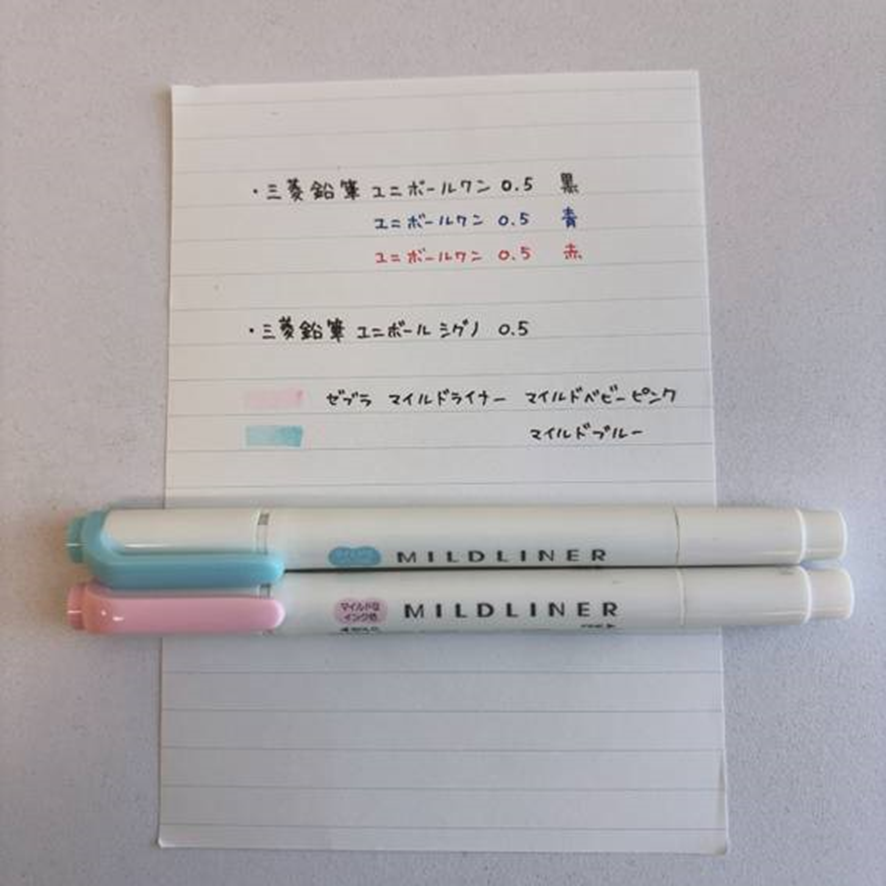 ・三菱鉛筆 ユニボールワン 0.5 黒
ユニボールワン 0.5 青
ユニボールワン 0.5 赤
・三菱鉛筆 ユニボール シグノ 0.5
ゼブラ マイルドライナー マイルドベビーピンク
マイルドブルー
MILDLINER
マイルドな
インク色
MILDLINER